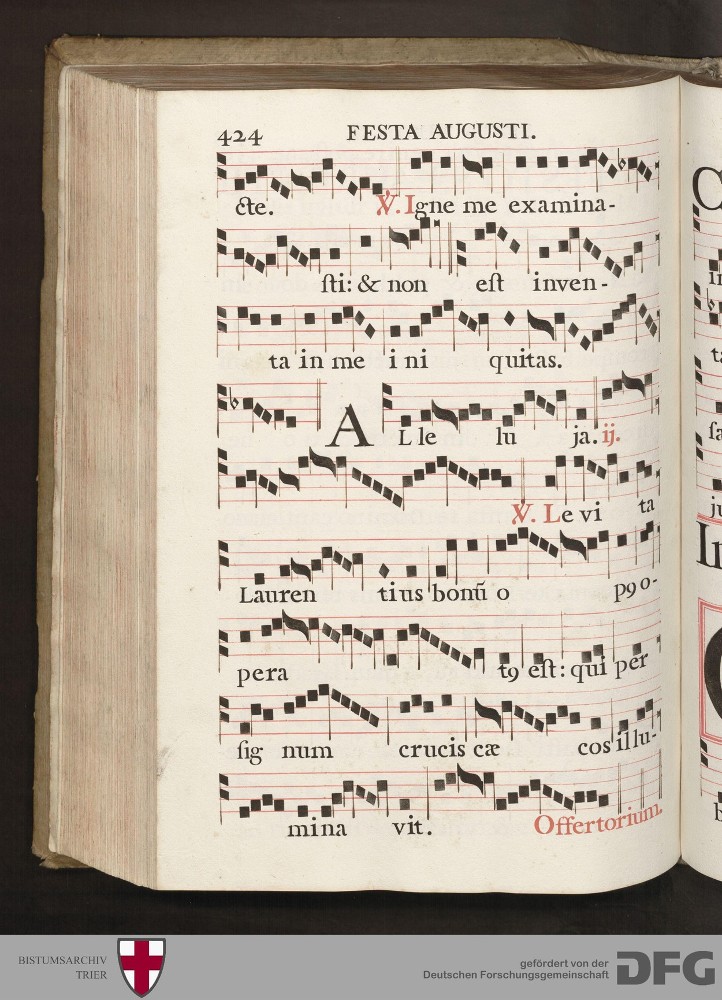 424 FESTA AUGUSTI.
cte. V. Igne me examina-
sti: & non est inven-
ta in me i ni quitas.
A L le lu ja. ij.
V. Le vi ta
Lauren tius bonũ o p9 o-
pera t9 est: qui per
sig num crucis cæ cos illu-
mina vit. Offertorium.
C
in
ta
fa
ju
In
BISTUMSARCHIV
TRIER
gefördert von der
Deutschen Forschungsgemeinschaft
DFG